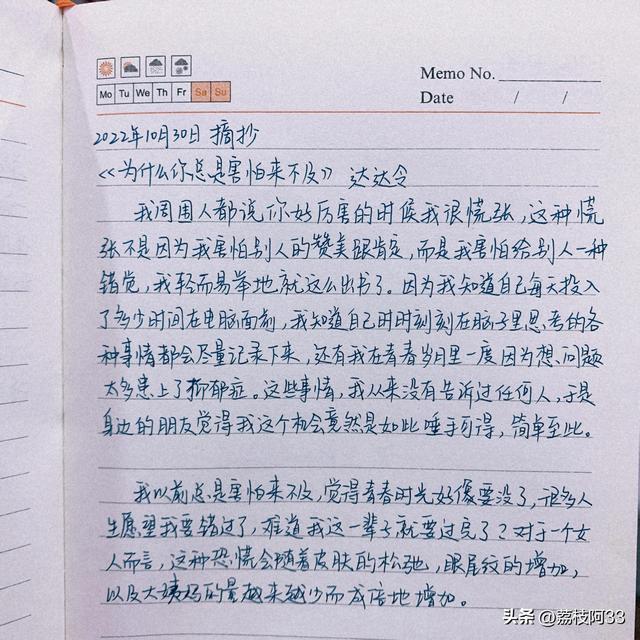 Memo No.
Mo Tu We Th Fr Sa Su
Date / /
2022年10月30日 摘抄
《为什么你总是害怕来不及》 达达令
我周围人都说你好厉害的时候我很慌张,这种慌
张不是因为我害怕别人的赞美跟肯定,而是我害怕给别人一种
错觉,我轻而易举地就这么出书了。因为我知道自己每天投入
了多少时间在电脑面前,我知道自己时时刻刻在脑子里思考的各
种事情都会尽量记录下来,还有我在青春岁月里一度因为想问题
太多患上了抑郁症。这些事情,我从来没有告诉过任何人,于是
身边的朋友觉得我这个机会竟然是如此唾手可得,简单至此。
我以前总是害怕来不及,觉得青春时光好像要没了,很多人
生愿望我要错过了,难道我这一辈子就要过完了?对于一个女
人而言,这种恐慌会随着皮肤的松弛,眼尾纹的增加,
以及大姨妈的量越来越少而成倍地增加。
头条 @荔枝阿33